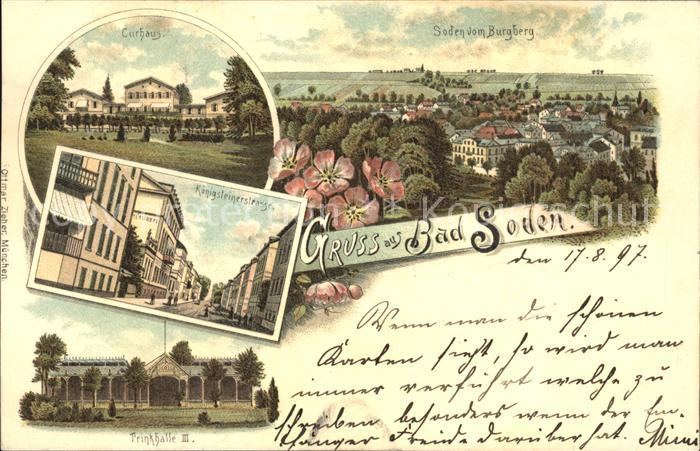 Curhaus.
Soden vom Burgberg
Königsteinerstrasse.
Gruss aus Bad Soden.
den 17.8.97.
Wenn man die schönen
Karten sieht, so wird man
immer verführt welche zu
schreiben besonders wenn der Em-
pfänger Freude darüber hat. Mimi
Trinkhalle III.
Ottmar Zieher, München.